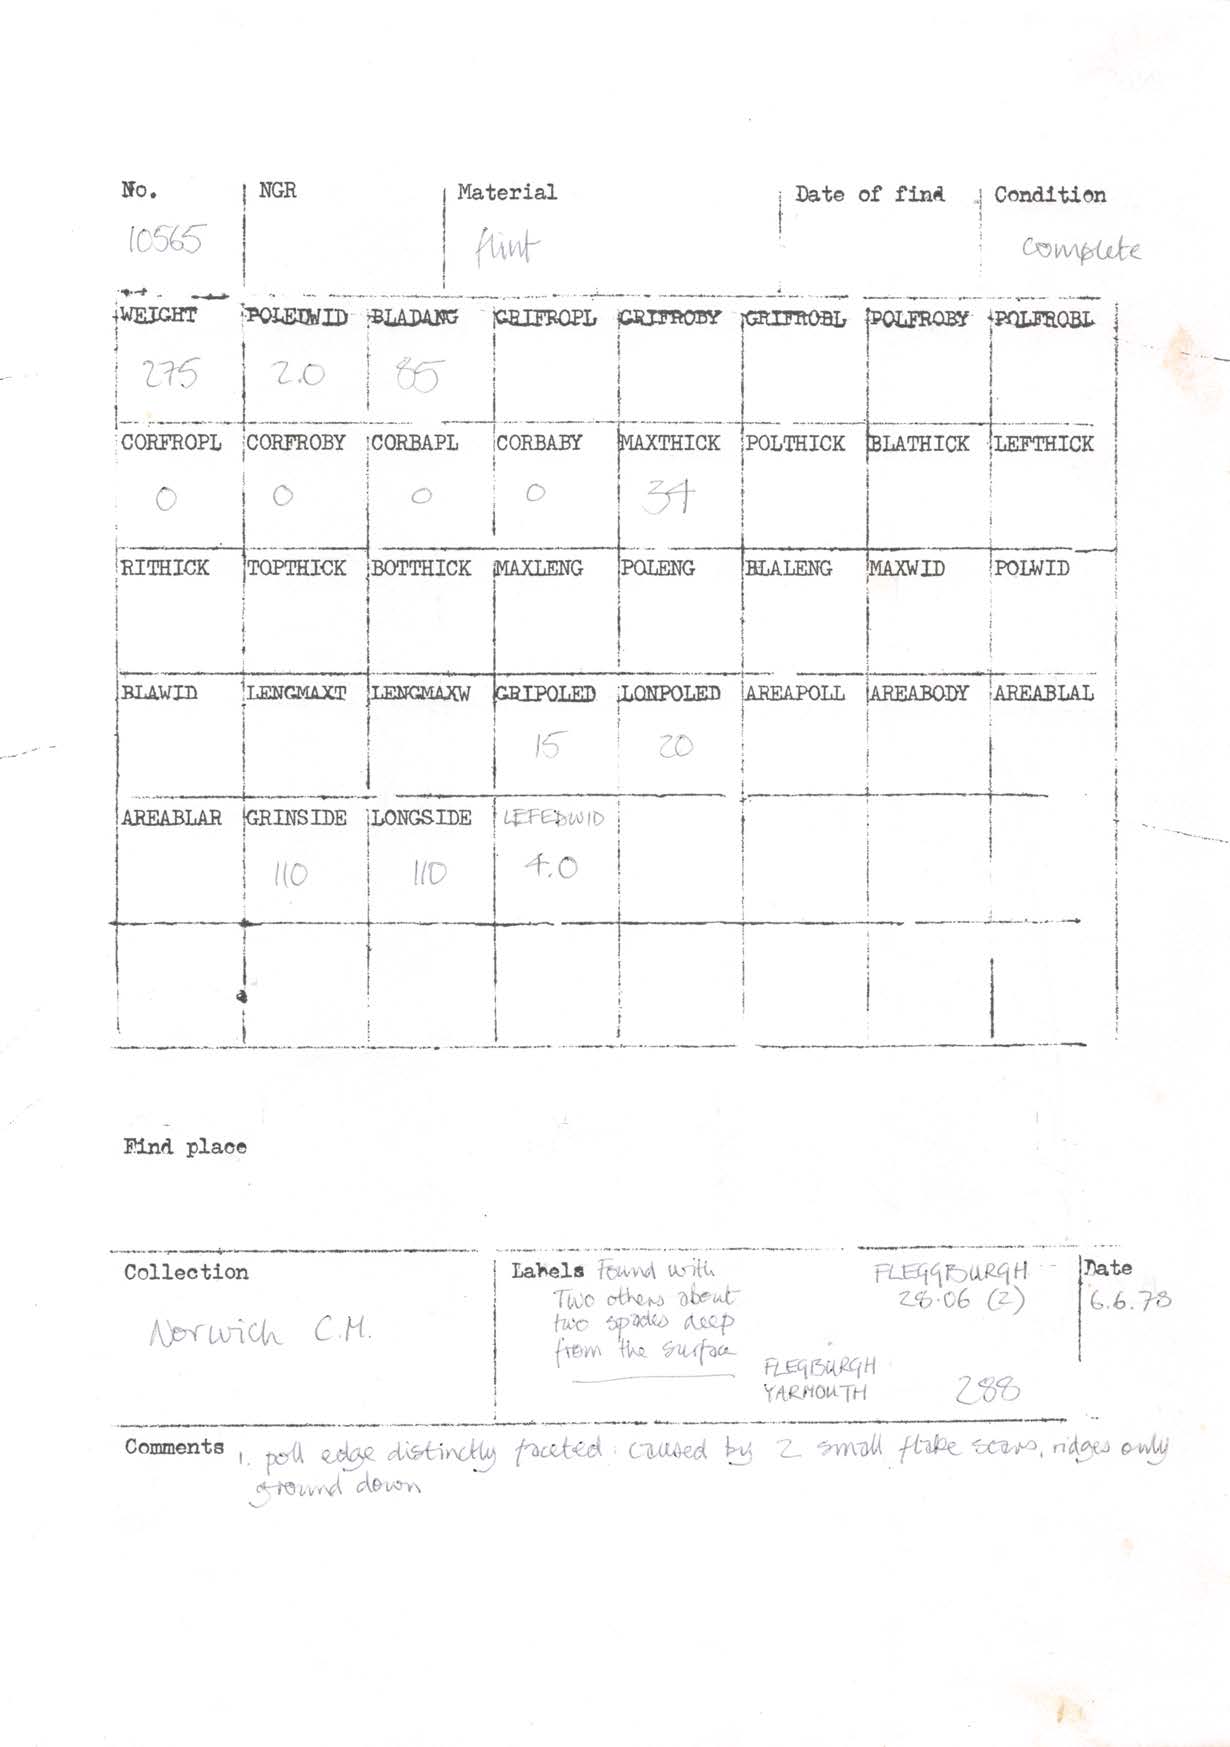 No. NGR Material Date of find Condition
10565 flint complete
WEIGHT POLEDWID BLADANG GRIFROPL GRIFROBY GRIFROBL POLFROBY POLFROBL
275 2.0 85
CORFROPL CORFROBY CORBAPL CORBABY MAXTHICK POLTHICK BLATHICK LEFTHICK
0 0 0 0 34
RITHICK TOPTHICK BOTTHICK MAXLENG POLENG BLALENG MAXWID POLWID
BLAWID LENGMAXT LENGMAXW GRIPOLED LONPOLED AREAPOLL AREABODY AREABLAL
15 20
AREABLAR GRINSIDE LONGSIDE LEFEDWID
110 110 4.0
Find place
Collection
Norwich C.M.
Labels Found with
Two others about
two spades deep
from the surface
FLEGGBURGH
28.06 (2)
FLEGBURGH
YARMOUTH 288
Date
6.6.78
Comments 1. poll edge distinctly faceted : caused by 2 small flake scars, ridges only
ground down